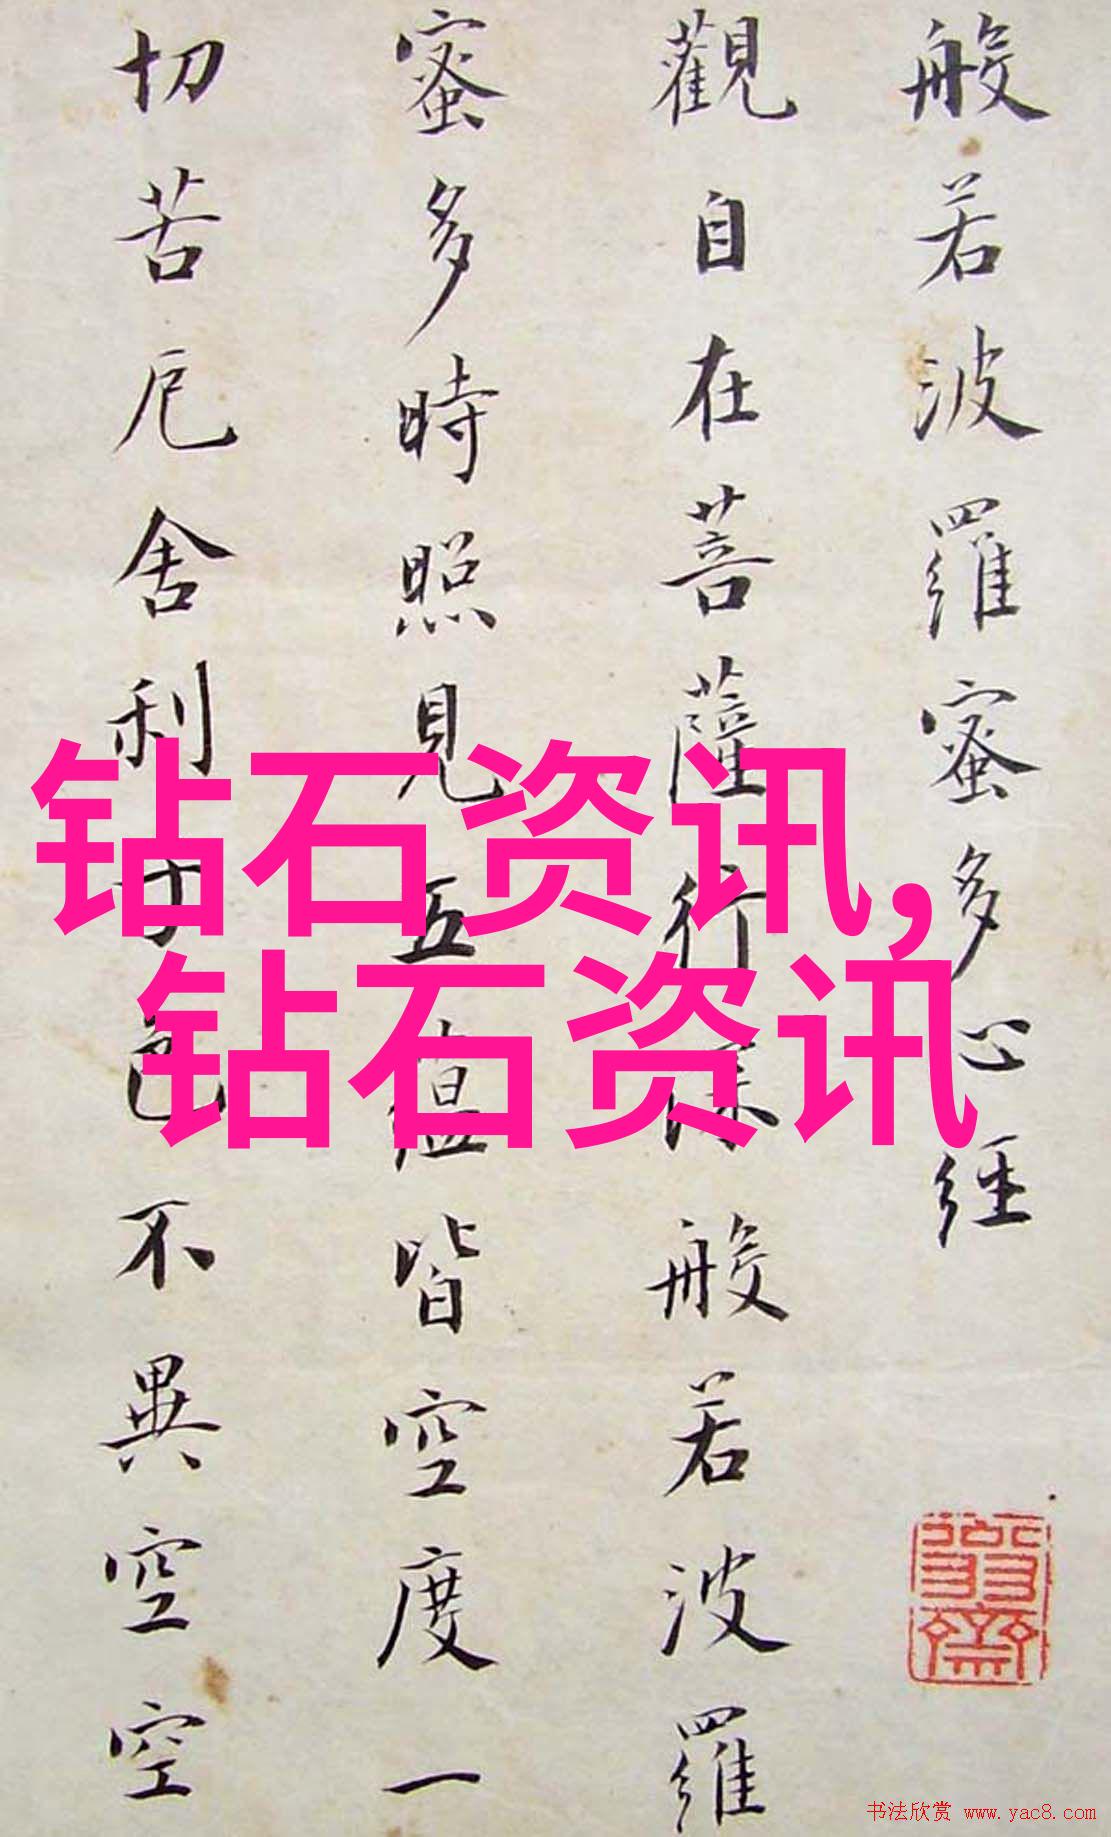 般若波羅蜜多心經
觀自在菩薩行深般若波羅
蜜多時照見五蘊皆空度一
切苦厄舍利子色不異空空
钻石资讯,
钻石资讯
书法欣赏 www.yac8.com